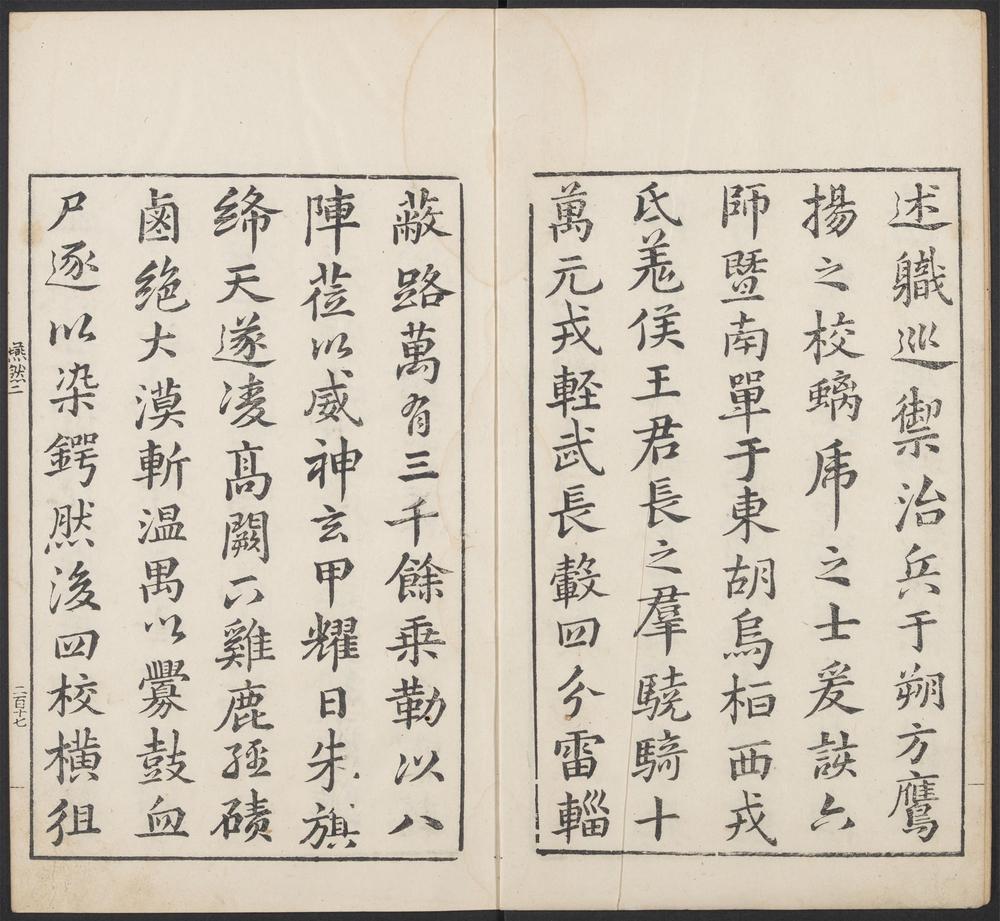 述職巡禦治兵于朔方鷹
揚之校螭虎之士爰該六
師暨南單于東胡烏桓西戎
氐羌侯王君長之羣驍騎十
萬元戎軽武長轂四分雷輜
蔽路萬有三千餘乗勒以八
陣莅以威神玄甲耀日朱旗
絳天遂凌髙闕下雞鹿經磧
鹵絶大漠斬温禺以釁鼓血
尸逐以染鍔然後四校横徂
燕然二
二百十七